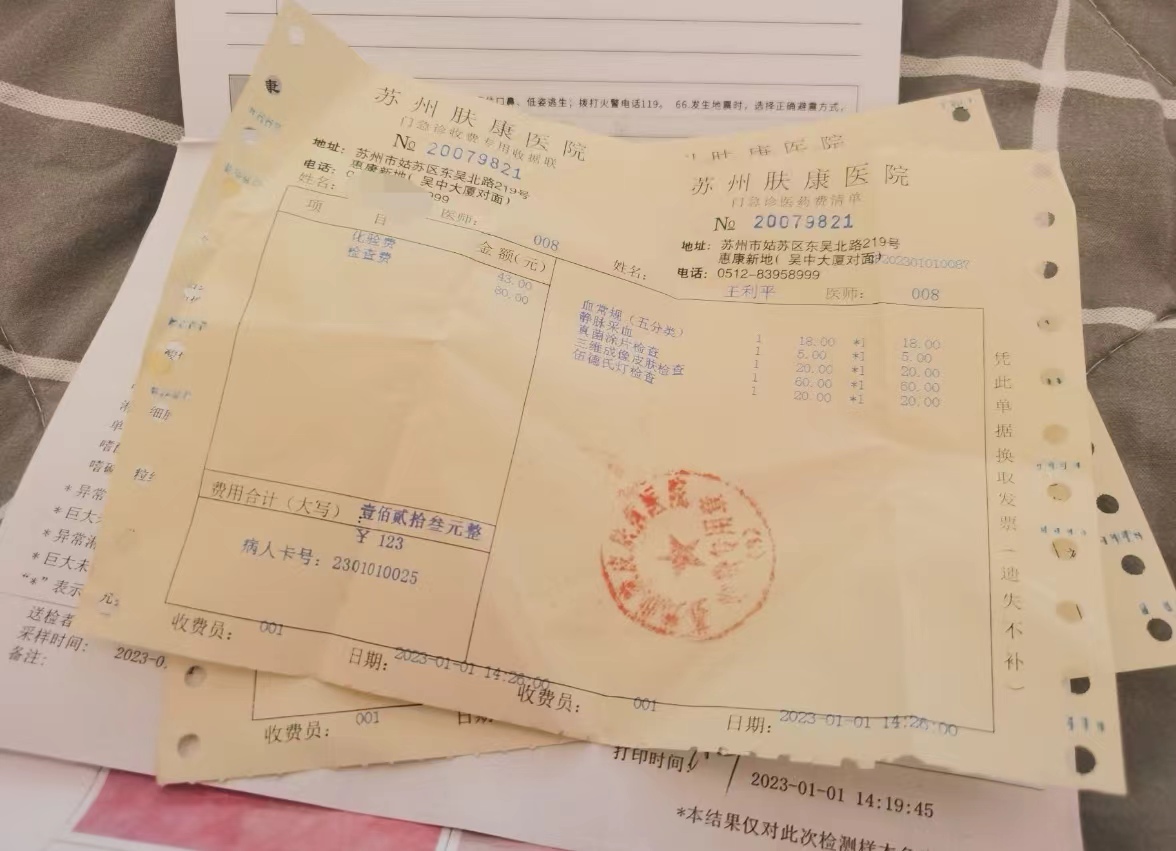 口鼻、低姿逃生；拨打火警电话119。 66.发生地震时，选择正确避震方式，
苏州肤康医院
门急诊收费专用收据联
№ 20079821
地址：苏州市姑苏区东吴北路219号
惠康新地（吴中大厦对面）
电话：0
999
姓名：
医师：
008
项 目
金额(元)
化验费
43.00
检查费
80.00
费用合计（大写）：壹佰贰拾叁元整
￥ 123
病人卡号：2301010025
收费员：
001
日期：
2023-01-01 14:26:00
肤康医院
苏州肤康医院
门急诊医药费清单
№ 20079821
地址：苏州市姑苏区东吴北路219号
惠康新地（吴中大厦对面）
202301010087
电话：0512-83958999
姓名：
王利平
医师：
008
血常规（五分类）
1 18.00 *1 18.00
静脉采血
1 5.00 *1 5.00
真菌涂片检查
1 20.00 *1 20.00
三维成像皮肤检查
1 60.00 *1 60.00
伍德氏灯检查
1 20.00 *1 20.00
凭此单据换取发票（遗失不补）
收费员：
001
日期：
2023-01-01 14:26:00
细胞
单
嗜
嗜碱
粒细
*异常
*巨大
*异常淋
*巨大未
"*"表示
元
送检者
采样时间：
2023-0
备注：
收费员：
001
日期
打印时间
2023-01-01 14:19:45
*本结果仅对此次检测样本